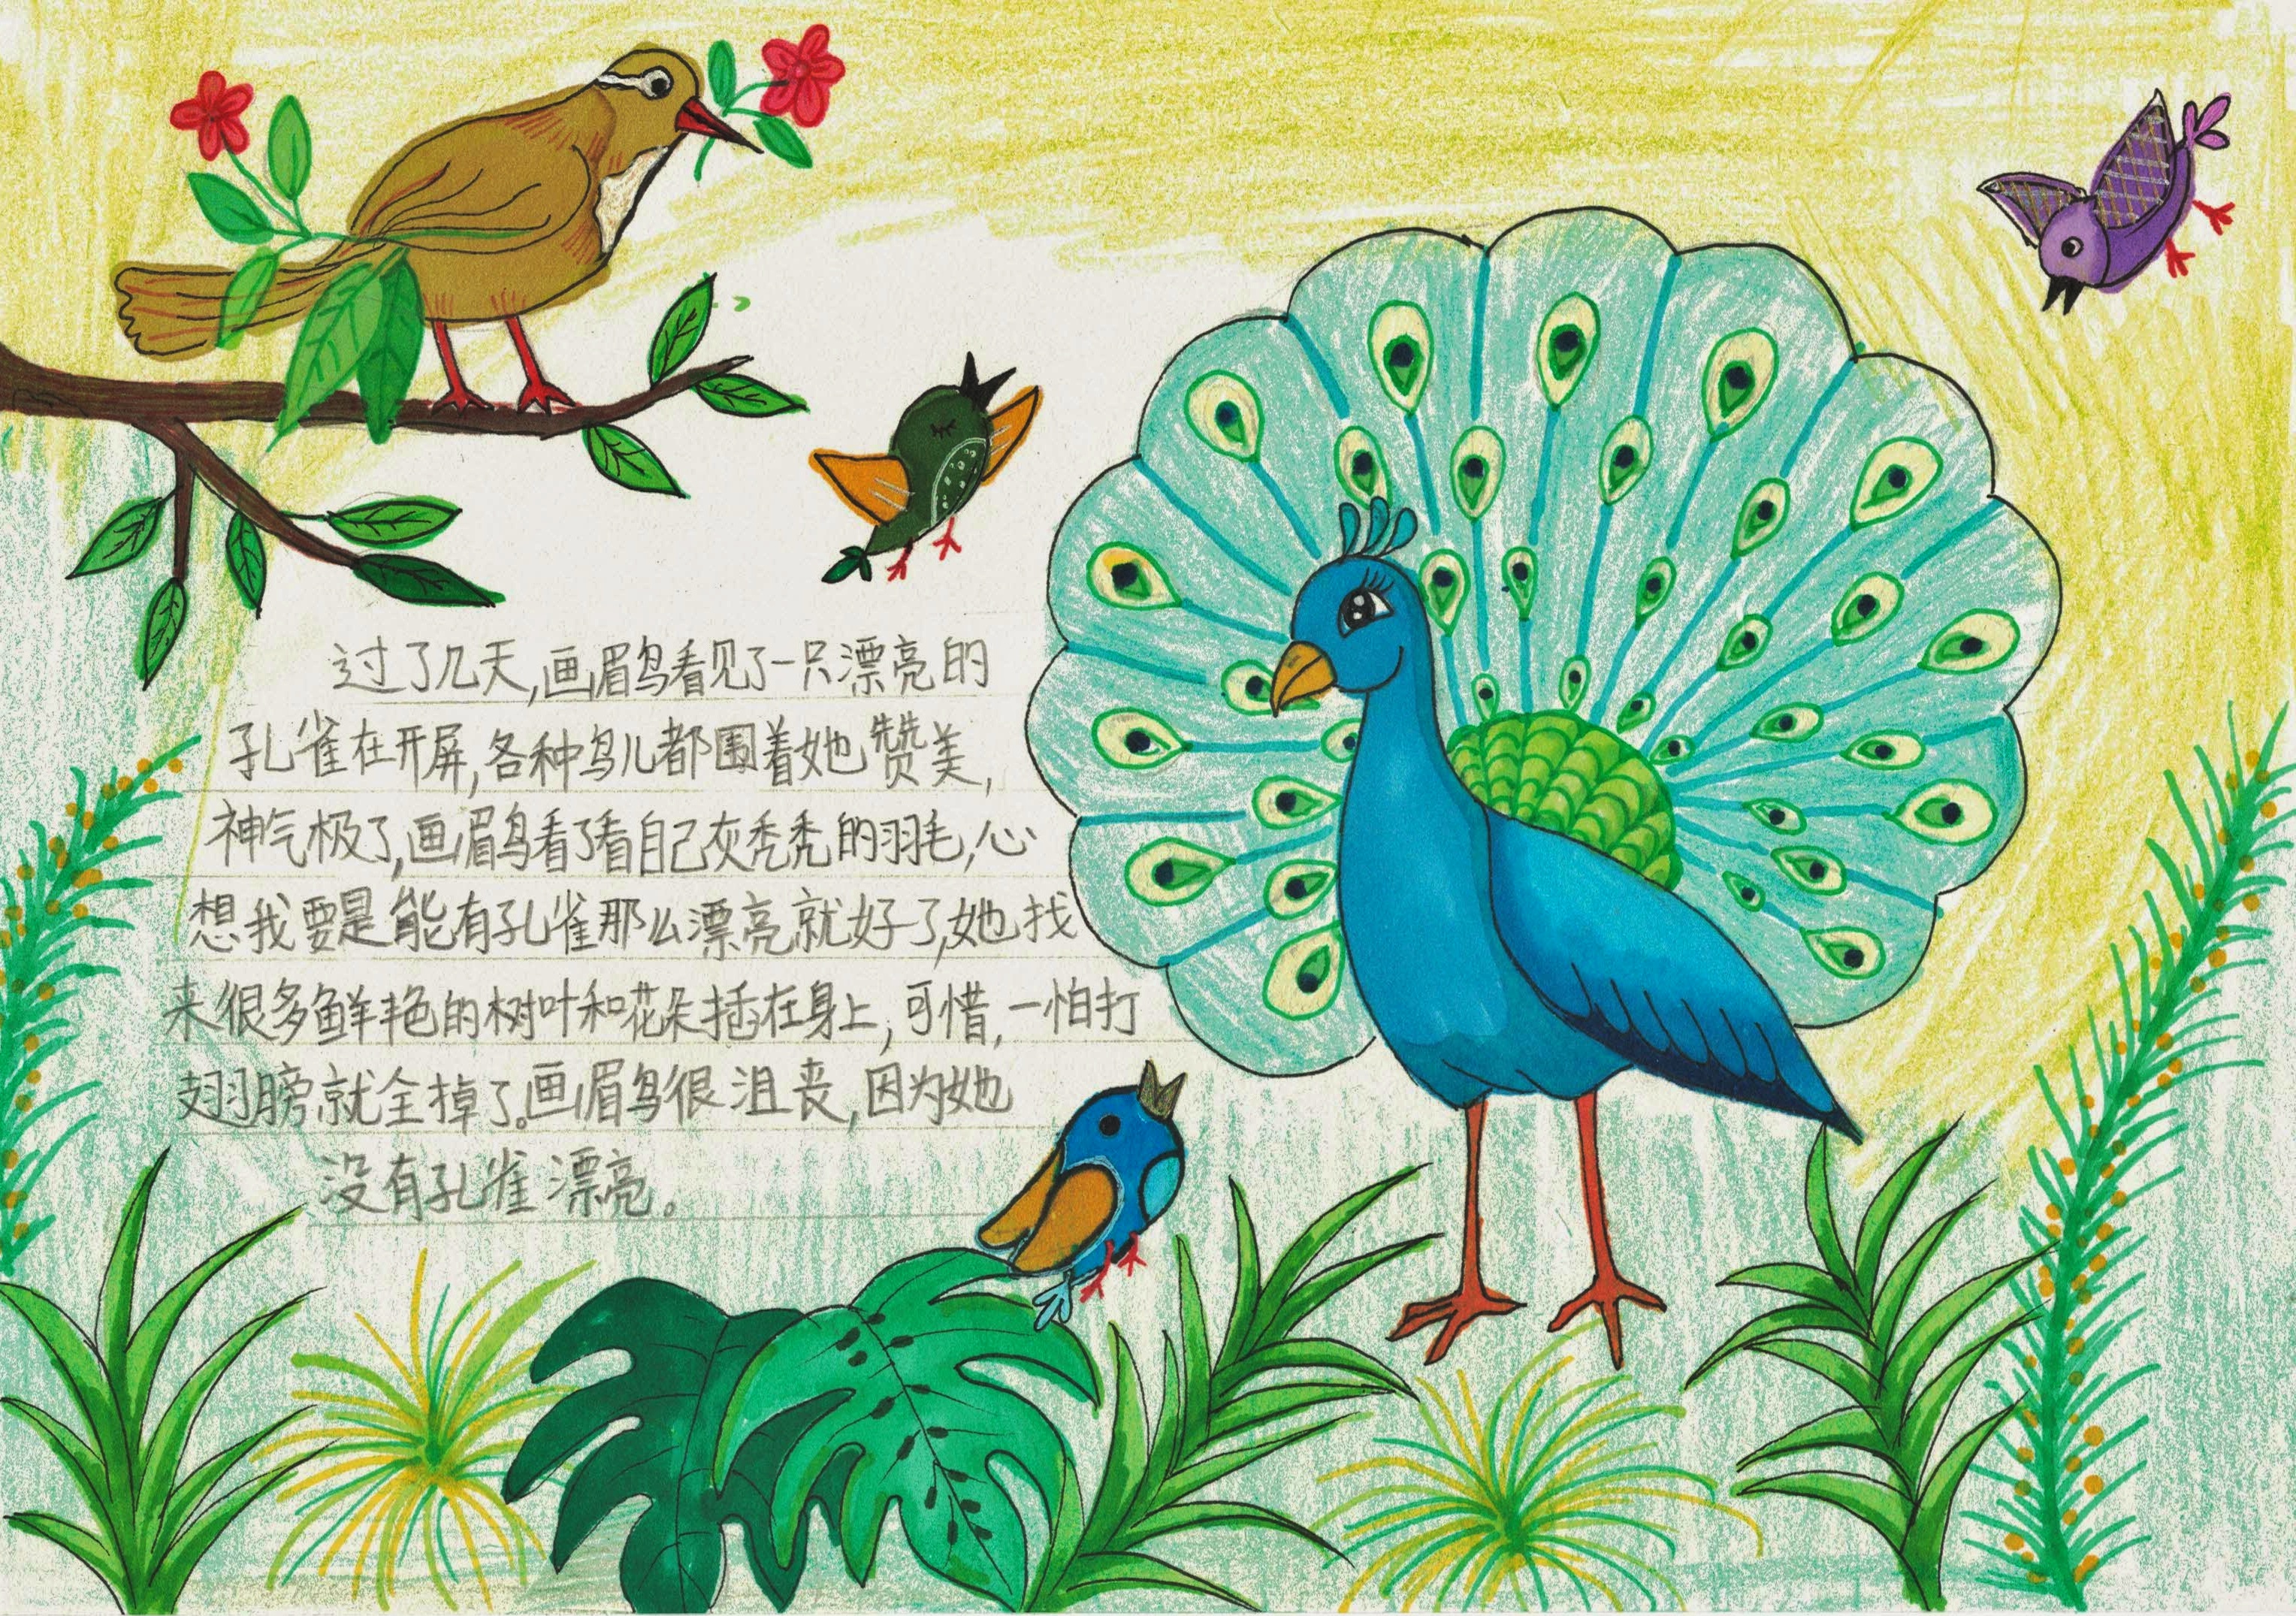 过了几天,画眉鸟看见了一只漂亮的
孔雀在开屏,各种鸟儿都围着她赞美,
神气极了,画眉鸟看了看自己灰秃秃的羽毛,心
想我要是能有孔雀那么漂亮就好了,她找
来很多鲜艳的树叶和花朵插在身上,可惜,一怕打
翅膀就全掉了。画眉鸟很沮丧,因为她
没有孔雀漂亮。